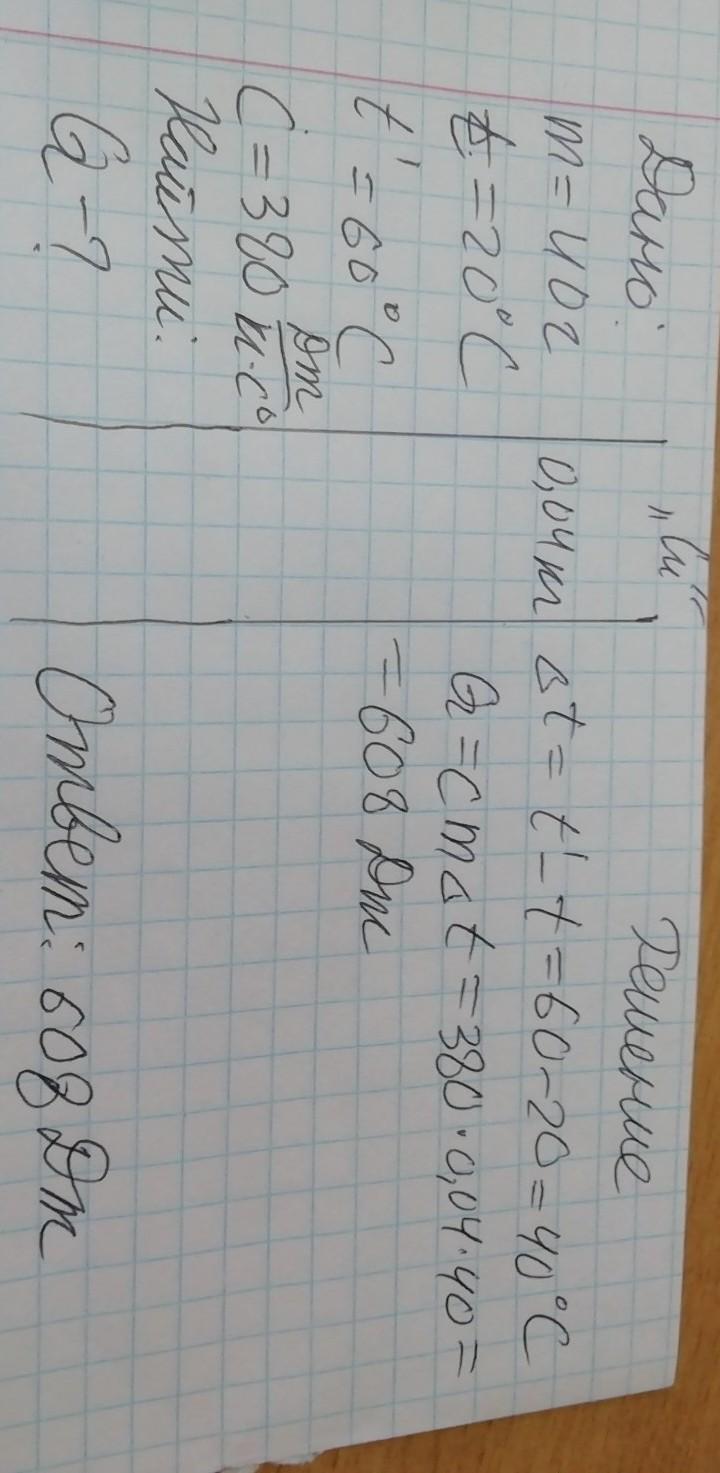 Дано:
m = 40 г
t = 20°C
t' = 60°C
C = 380 Дж/кг·C°
Найти:
Q - ?
"Си"
0,04 кг
Решение
Δt = t' - t = 60 - 20 = 40°C
Q = c m Δt = 380 · 0,04 · 40 =
= 608 Дж
Ответ: 608 Дж